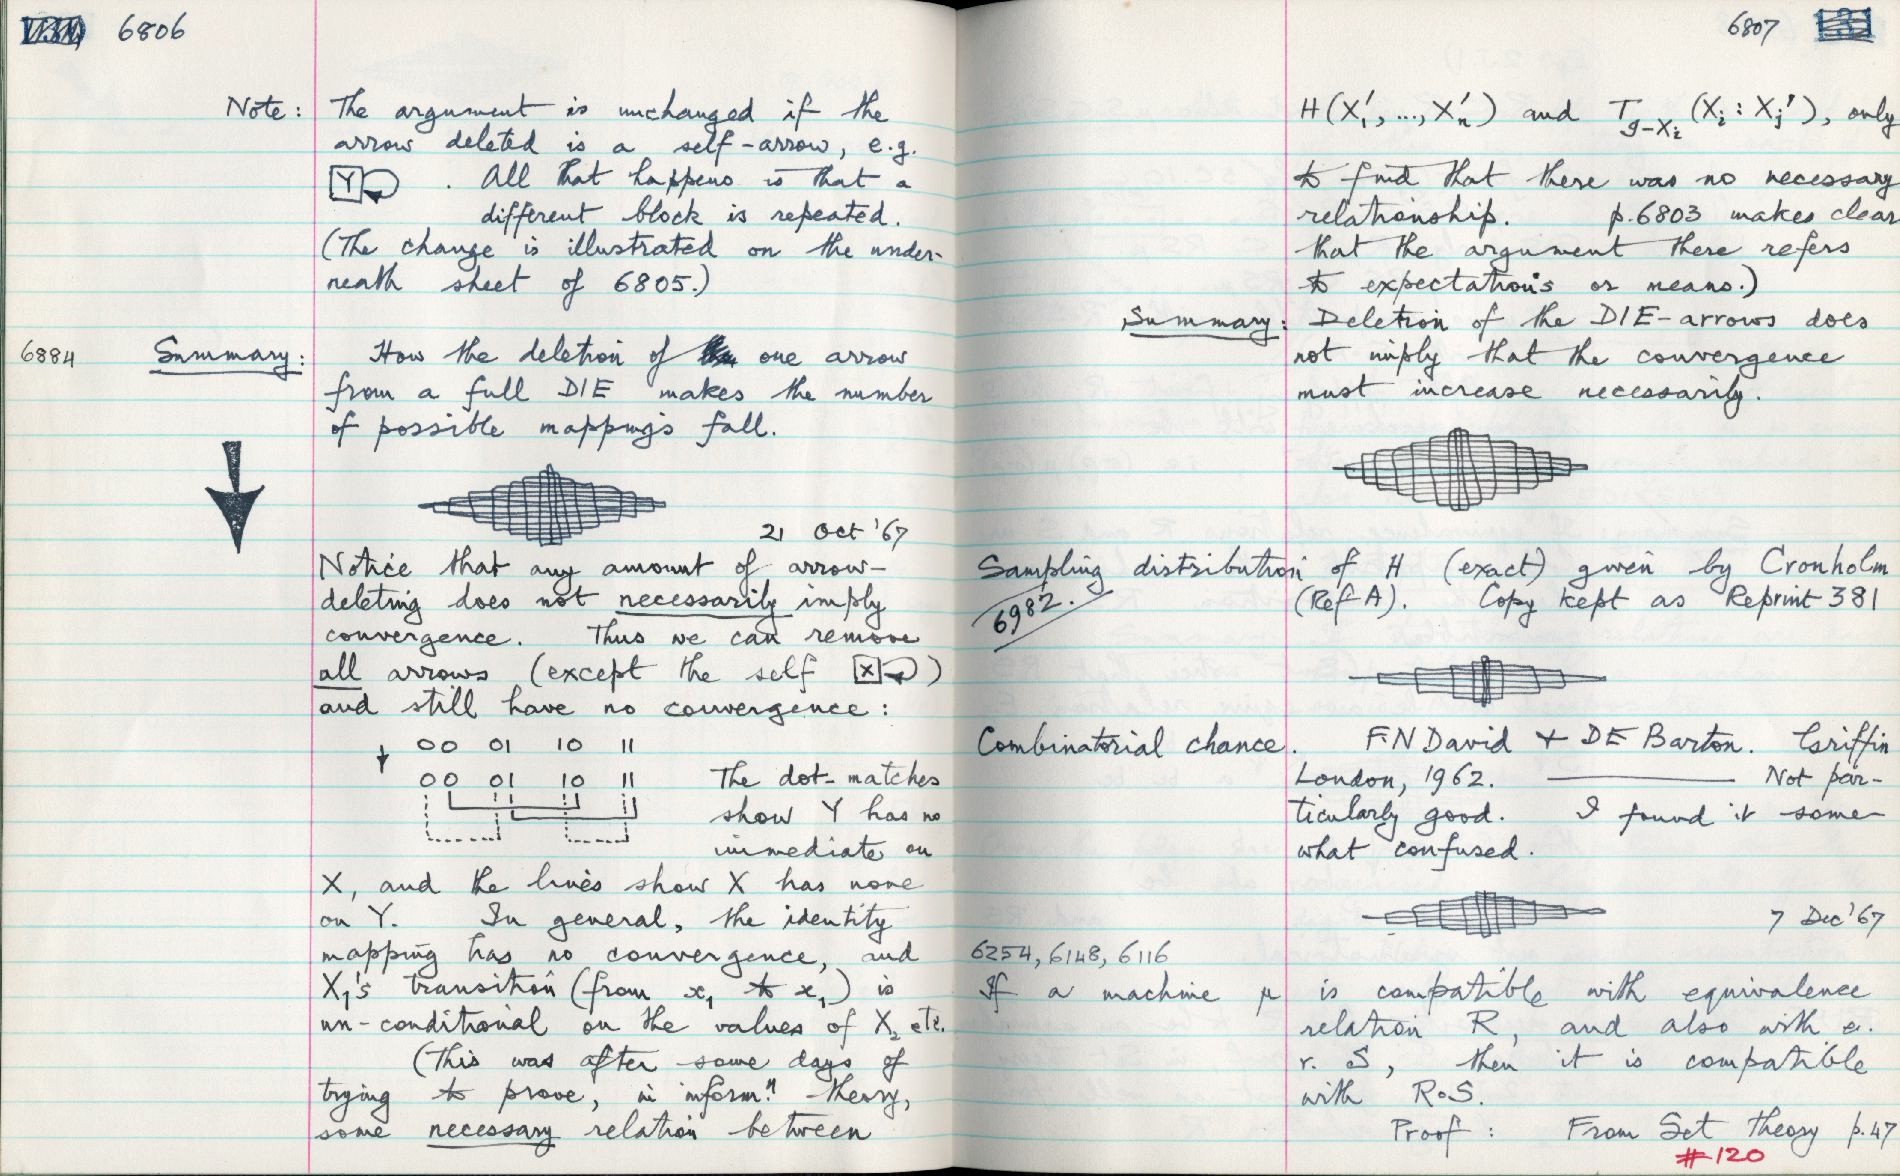 6806
Note: The argument is unchanged if the
arrow deleted is a self-arrow, e.g.
Y . All that happens is that a
different block is repeated.
(The change is illustrated on the under-
neath sheet of 6805.)
6884 Summary: How the deletion of one arrow
from a full DIE makes the number
of possible mappings fall.
21 Oct '67
Notice that any amount of arrow-
deleting does not necessarily imply
convergence. Thus we can remove
all arrows (except the self X )
and still have no convergence:
00 01 10 11
00 01 10 11 The dot-matches
show Y has no
immediate on
X, and the lines show X has none
on Y. In general, the identity
mapping has no convergence, and
X₁'s transition (from x₁ to x₁) is
un-conditional on the values of X₂ etc.
(This was after some days of
trying to prove, in informⁿ theory,
some necessary relation between
6807 131
H(X₁', ..., Xₙ') and T_{g-Xᵢ} (Xᵢ : Xⱼ'), only
to find that there was no necessary
relationship. p.6803 makes clear
that the argument there refers
to expectations or means.)
Summary: Deletion of the DIE-arrows does
not imply that the convergence
must increase necessarily.
Sampling distribution of H (exact) given by Cronholm
6982. (Ref A). Copy kept as Reprint 381
Combinatorial chance. F.N David + DE Barton. Griffin
London, 1962. ——— Not par-
ticularly good. I found it some-
what confused.
7 Dec '67
6254, 6148, 6116
If a machine μ is compatible with equivalence
relation R, and also with e.
r. S, then it is compatible
with R∘S.
Proof: From Set Theory p.47
#120